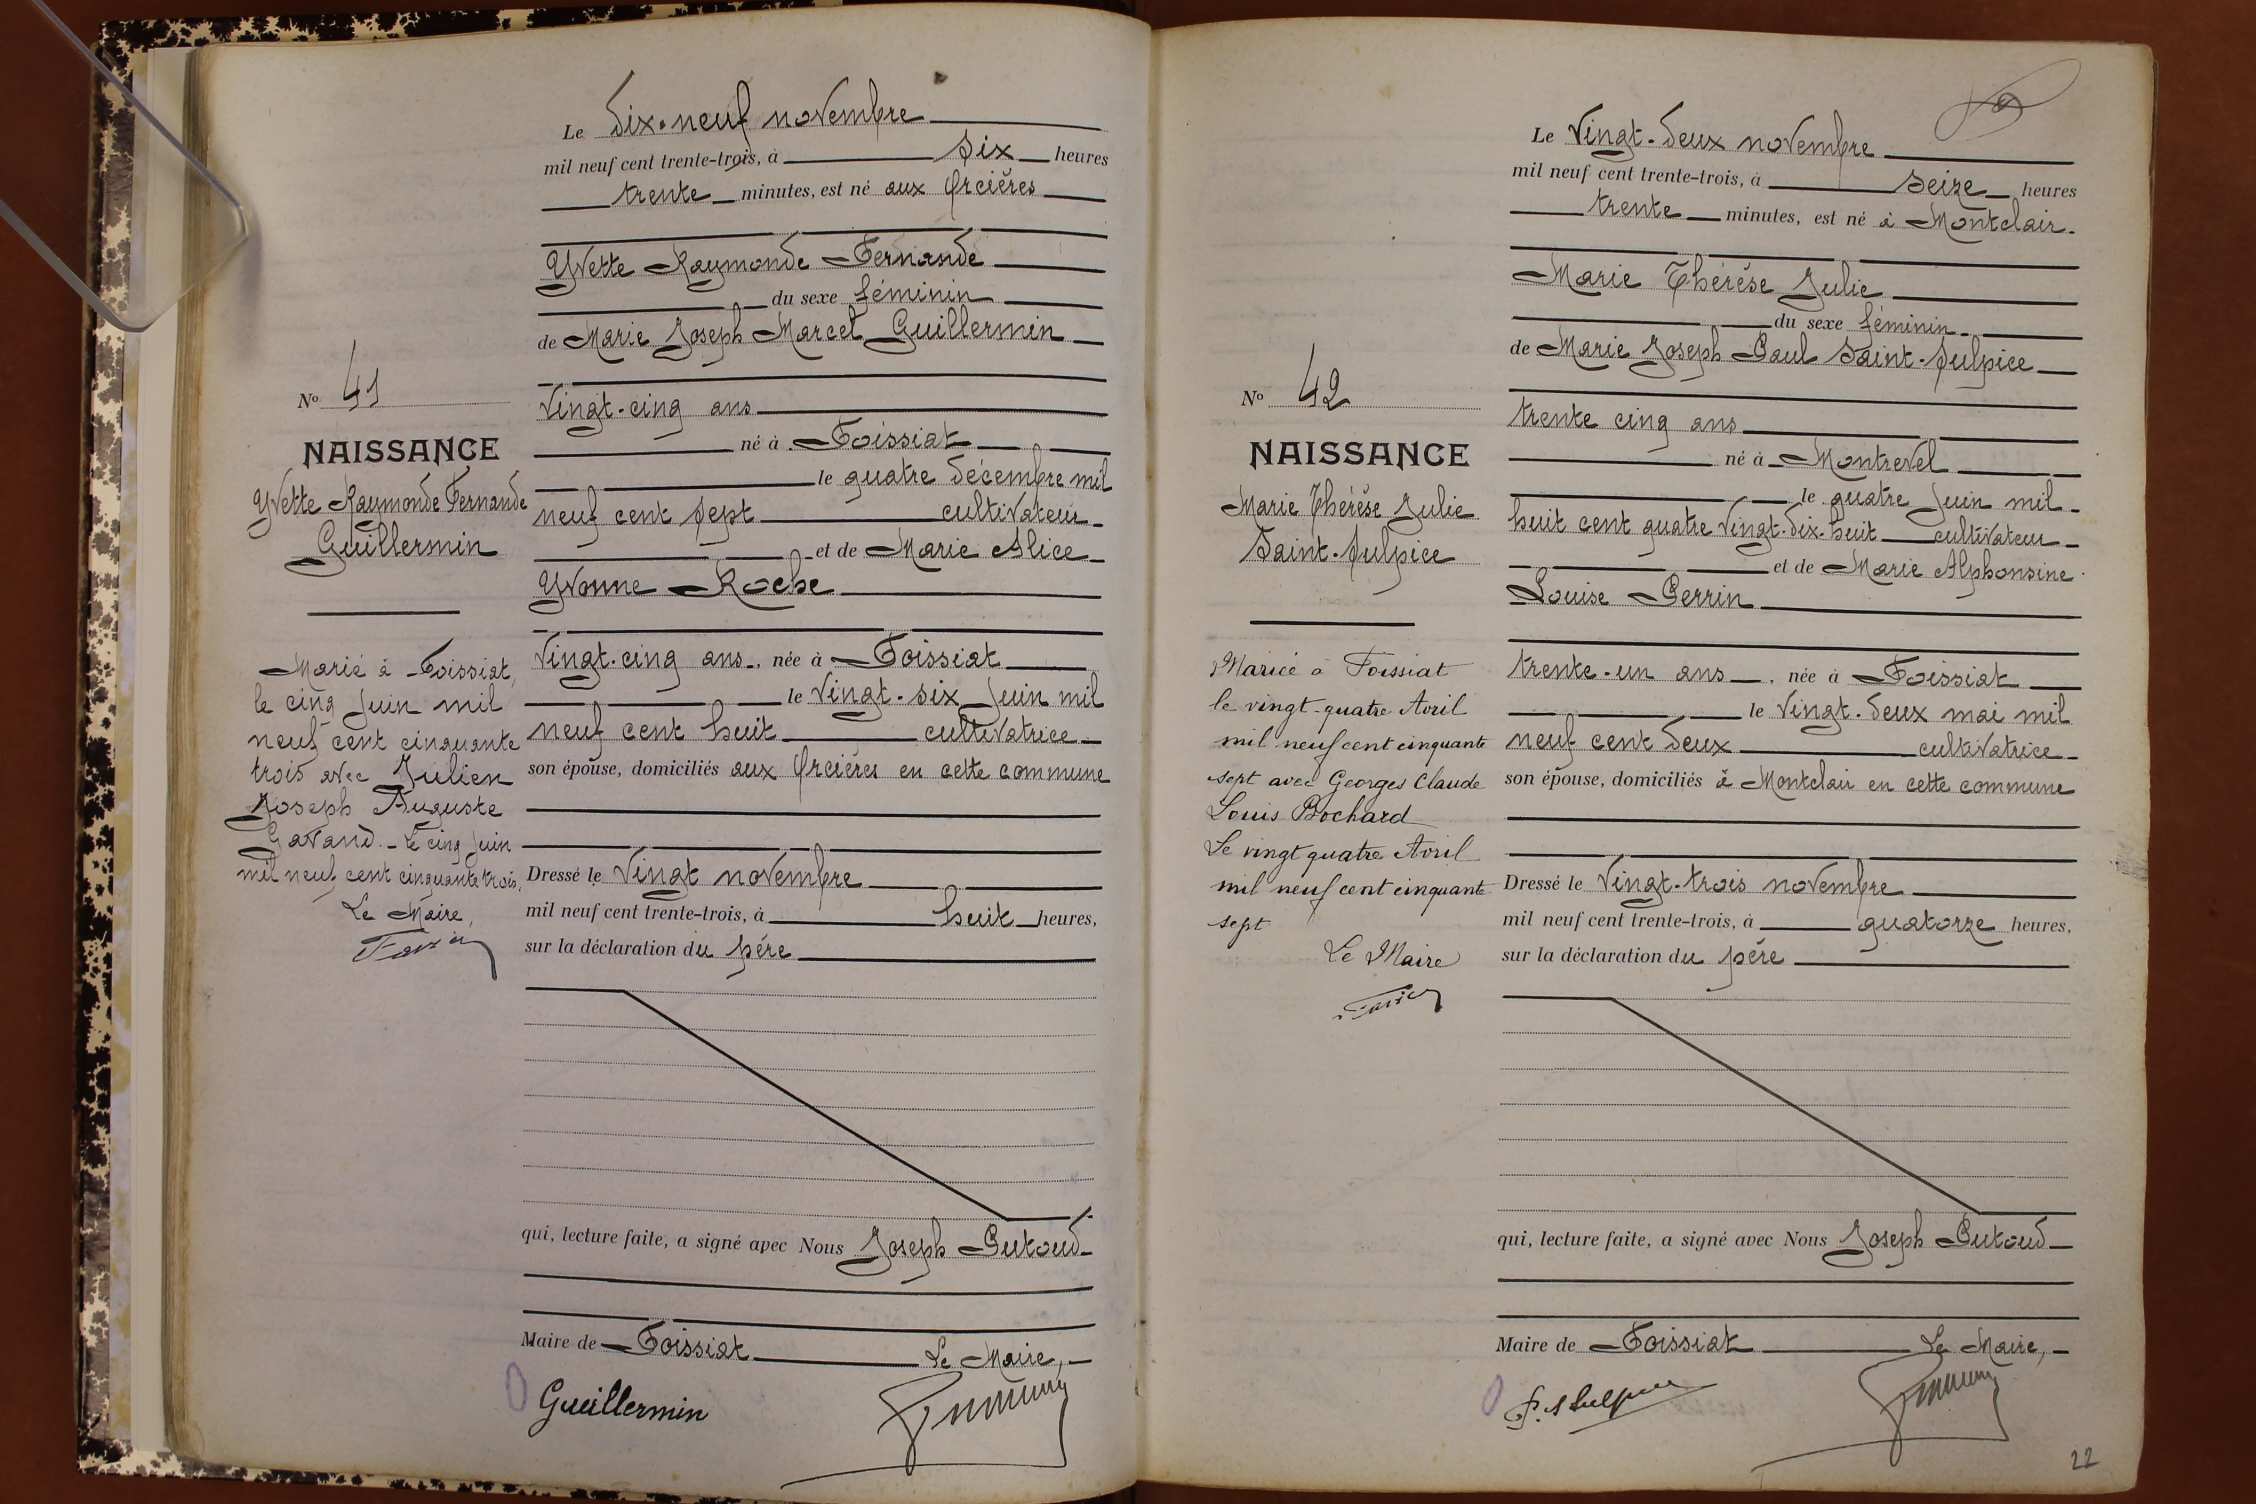 Le Dix-neuf novembre
mil neuf cent trente-trois, à six heures
trente minutes, est né aux Orcières
Yvette Raymonde Fernande
du sexe féminin
de Marie Joseph Marcel Guillermin
Vingt-cinq ans
né à Foissiat
le quatre décembre mil
neuf cent sept cultivateur
et de Marie Alice
Yvonne Roche
Vingt-cinq ans, née à Foissiat
le Vingt-six Juin mil
neuf cent huit cultivatrice
son épouse, domiciliés aux Orcières en cette commune
Dressé le Vingt novembre
mil neuf cent trente-trois, à huit heures,
sur la déclaration du père
qui, lecture faite, a signé avec Nous Joseph Putoud
Maire de Foissiat Le Maire,
Guillermin
No 41
NAISSANCE
Yvette Raymonde Fernande
Guillermin
Marié à Foissiat,
le cinq Juin mil
neuf cent cinquante
trois avec Julien
Joseph Auguste
Gavand. - Le cinq Juin
mil neuf cent cinquante trois,
Le Maire,
Le Vingt-deux novembre
mil neuf cent trente-trois, à seize heures
trente minutes, est né à Montclair
Marie Thérèse Julie
du sexe féminin
de Marie Joseph Paul Saint-Sulpice
trente cinq ans
né à Montrevel
le quatre Juin mil
huit cent quatre Vingt-dix-huit cultivateur
et de Marie Alphonsine
Louise Perrin
trente-un ans, née à Foissiat
le Vingt-deux mai mil
neuf cent deux cultivatrice
son épouse, domiciliés à Montclair en cette commune
Dressé le Vingt-trois novembre
mil neuf cent trente-trois, à quatorze heures,
sur la déclaration du père
qui, lecture faite, a signé avec Nous Joseph Putoud
Maire de Foissiat Le Maire,
No 42
NAISSANCE
Marie Thérèse Julie
Saint-Sulpice
Mariée à Foissiat
le vingt-quatre Avril
mil neuf cent cinquante
sept avec Georges Claude
Louis Bochard
Le vingt quatre Avril
mil neuf cent cinquante
sept
Le Maire
22